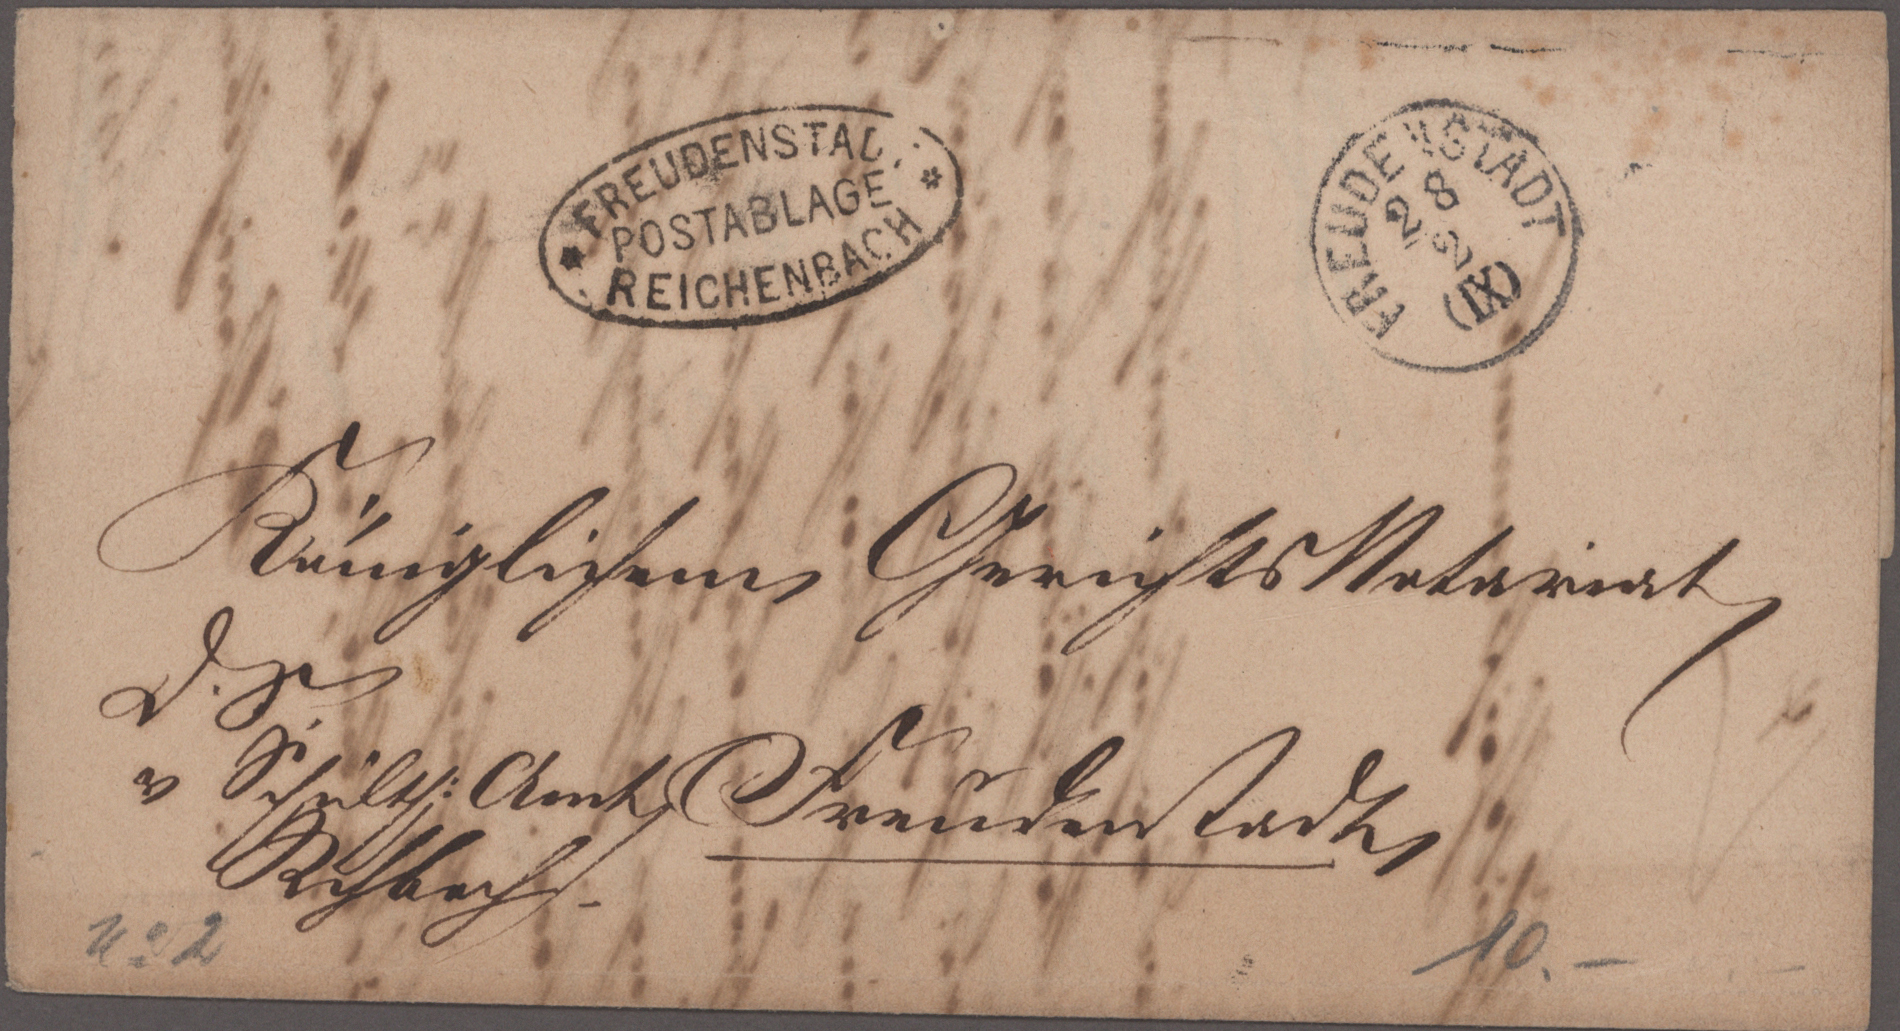 FREUDENSTAD
POSTABLAGE
REICHENBACH
FREUDENSTADT
28
2
(XI)
Königlichem Gerichts Notariat
D. S.
v Schulth: Amt
Freudenstadt
Rchbach.
No 2
10.–